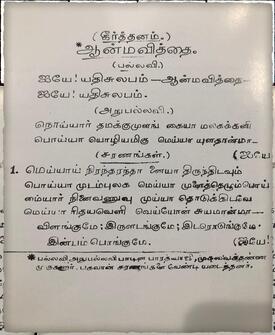 (கீர்த்தனம்.)
*ஆன்மவித்தை.
(பல்லவி.)
ஐயே! யதிசுலபம் — ஆன்மவித்தை—
ஐயே! யதிசுலபம்.
(அநுபல்லவி.)
நொய்யார் தமக்குமுளங் கையா மலகக்கனி
பொய்யா யொழியமிகு மெய்யா யுளதான்மா—
(சரணங்கள்.) (ஐயே
1. மெய்யாய் நிரந்தரந்தா னையா திருந்திடவும்
பொய்யா முடம்புலக மெய்யா முளைத்தெழும்பொய்
மையார் நினைவணுவு முய்யா தொடுக்கிடவே
மெய்யா ரிதயவெளி வெய்யோன் சுயமான்மா—
விளங்குமே; இருளடங்குமே; இடரொடுங்குமே.
இன்பம் பொங்குமே. (ஐயே!
*பல்லவி, அநுபல்லவி பாடிய
பகவான் சரணங்கள் வேண்டி யடைத்தனர்.